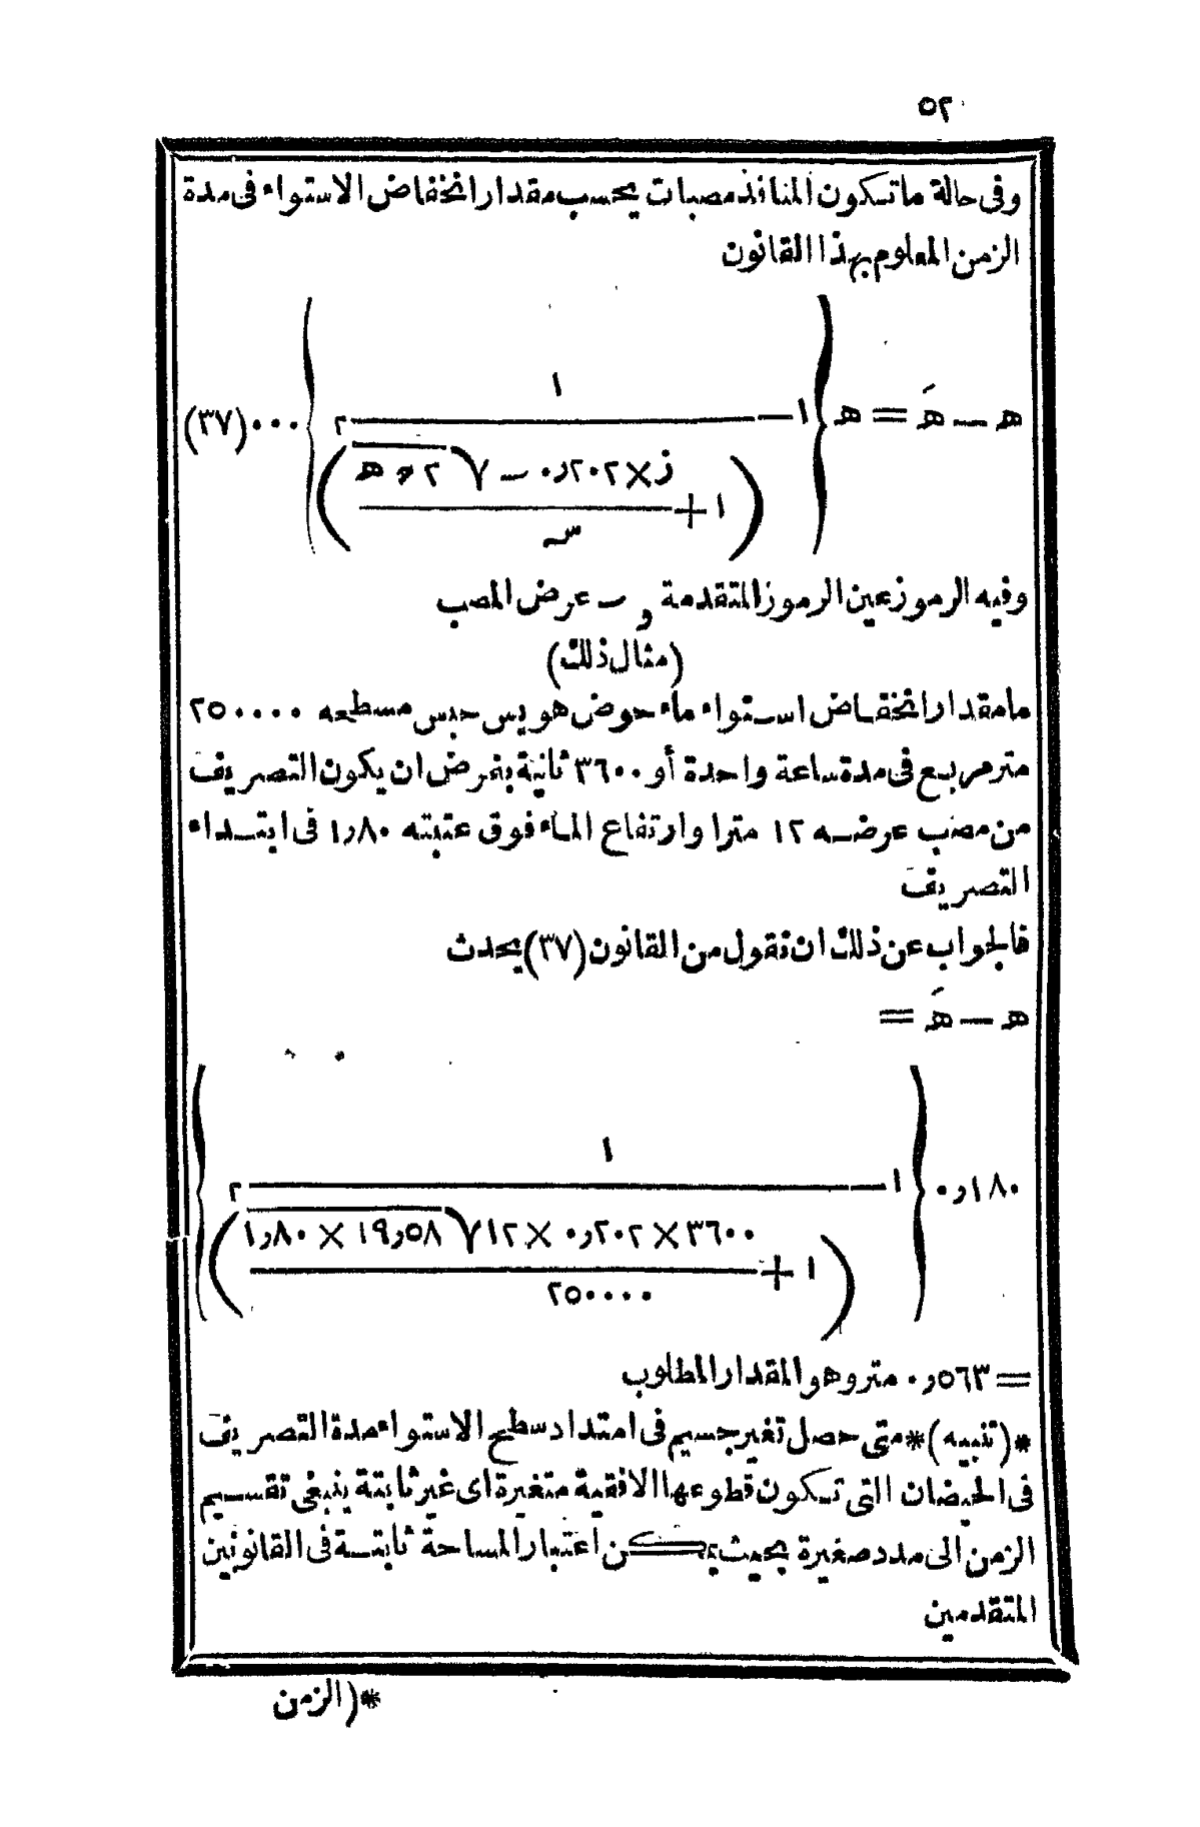 ٥٢
وفى حالة ماتكون المنافذ مصبات يحسب مقدار انخفاض الاستواء فى مدة
الزمن المعلوم بهذا القانون
ه — هَ = ه { ١ — ١ / ( ١ + ز × ٠٫٢٠٢ ـ √ ٢ و ه / سـ )٢ } ٠٠٠ (٣٧)
وفيه الرموز عين الرموز المتقدمة و ـ عرض المصب
(مثال ذلك)
ما مقدار انخفاض استواء ماء حوض هويس حبس مسطحه ٢٥٠٠٠٠
متر مربع فى مدة ساعة واحدة أو ٣٦٠٠ ثانية بفرض ان يكون التصريف
من مصب عرضه ١٢ مترا وارتفاع الماء فوق عتبته ١٫٨٠ فى ابتداء
التصريف
فالجواب عن ذلك ان نقول من القانون (٣٧) يحدث
ه — هَ =
٠٫١٨٠ { ١ — ١ / ( ١ + ٣٦٠٠ × ٠٫٢٠٢ × ١٢ √ ١٩٫٥٨ × ١٫٨٠ / ٢٥٠٠٠٠ )٢ }
= ٠٫٥٦٣ متر وهو المقدار المطلوب
*(تنبيه)* متى حصل تغير جسيم فى امتداد سطح الاستواء مدة التصريف
فى الحيضان التى تكون قطوعها الافقية متغيرة اى غير ثابتة ينبغى تقسيم
الزمن الى مدد صغيرة بحيث يمكن اعتبار المساحة ثابتة فى القانونين
المتقدمين
*(الزمن